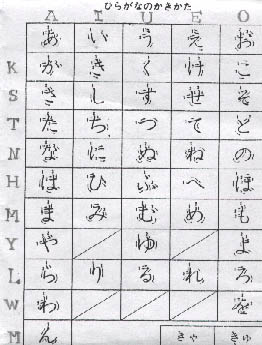 ひらがなのかきかた
A I U E O
あ い う え お
K か き く け こ
S さ し す せ そ
T た ち つ て と
N な に ぬ ね の
H は ひ ふ へ ほ
M ま み む め も
Y や ゆ よ
L ら り る れ ろ
W わ を
M ん きゃ きゅ